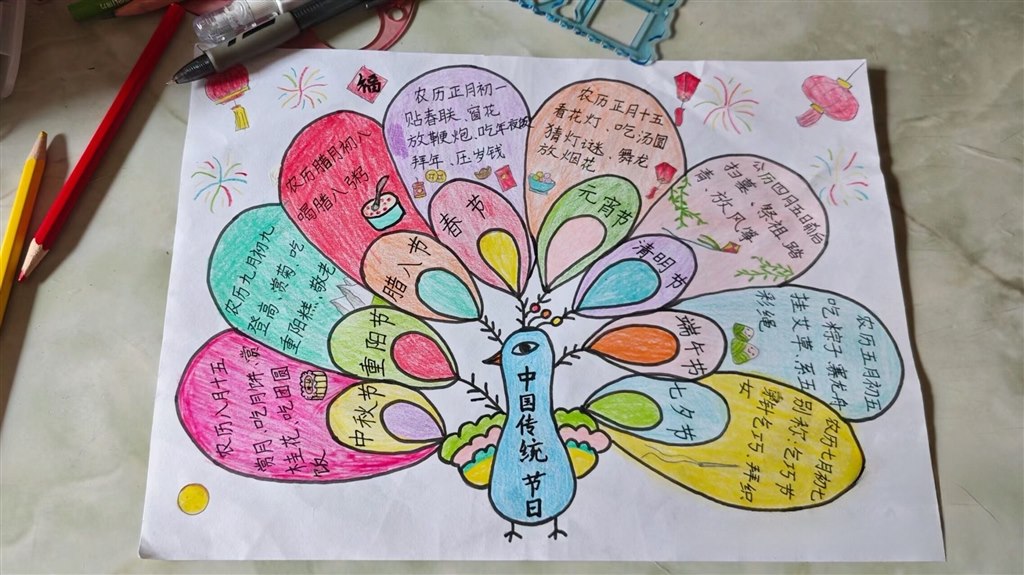 福
农历正月初一
贴春联、窗花
放鞭炮、吃年夜饭
拜年、压岁钱
春节
农历正月十五
看花灯、吃汤圆
猜灯谜、舞龙
放烟花
元宵节
公历四月五日前后
扫墓、祭祖、踏
青、放风筝
清明节
农历五月初五
吃粽子、赛龙舟
挂艾草、系五
彩绳
端午节
农历七月初七
别称:乞巧节
乞巧、拜织
女
七夕节
农历八月十五
月、吃月饼、赏
桂花、吃团圆
饭
中秋节
农历九月初九
登高、赏菊、吃
重阳糕、敬老
重阳节
农历腊月初八
喝腊八粥
腊八节
中国传统节日